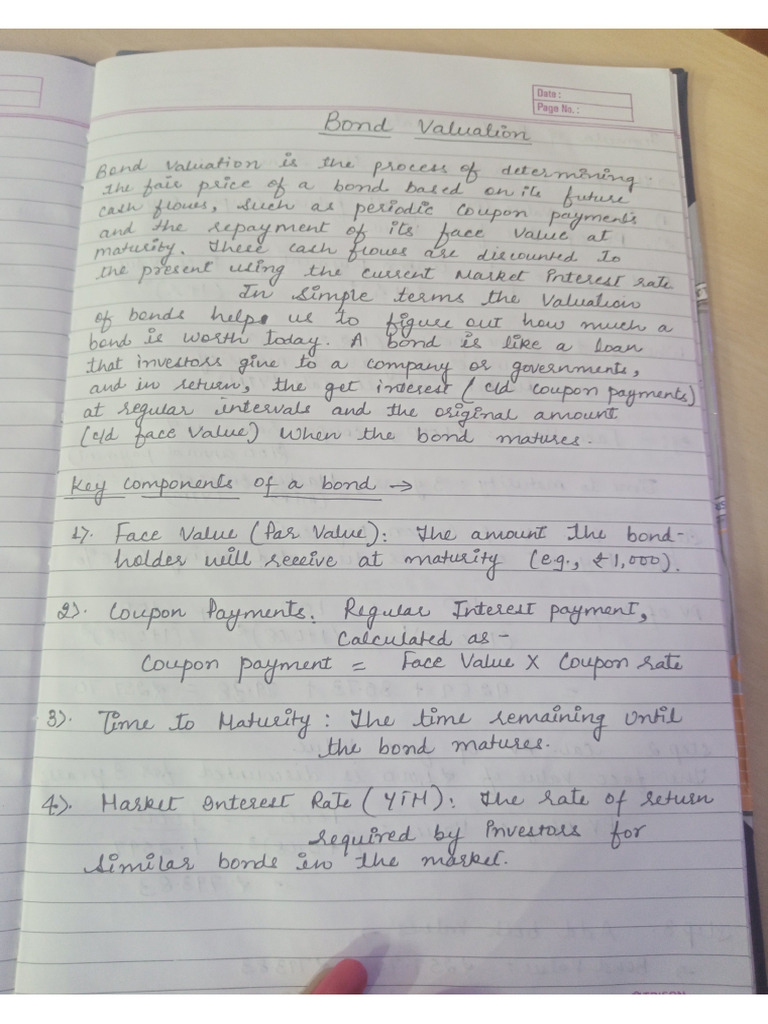 Date:
Page No.:
Bond Valuation
Bond Valuation is the process of determining
the fair price of a bond based on its future
cash flows, such as periodic coupon payments
and the repayment of its face value at
maturity. These cash flows are discounted to
the present using the current Market Interest rate
In simple terms the Valuation
of bonds help us to figure out how much a
bond is worth today. A bond is like a loan
that investors give to a company or governments,
and in return, the get interest (c/d coupon payments)
at regular intervals and the original amount
(c/d face Value) when the bond matures.
Key components of a bond →
1). Face Value (Par Value): The amount the bond-
holder will receive at maturity (e.g., ₹1,000).
2). Coupon Payments: Regular Interest payment,
Calculated as -
Coupon payment = Face Value X Coupon rate
3). Time to Maturity: The time remaining until
the bond matures.
4). Market Interest Rate (YTM): The rate of return
required by investors for
similar bonds in the market.